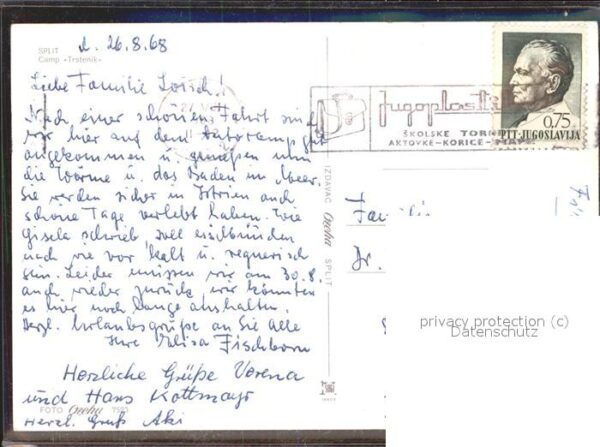 d. 26.8.68
SPLIT
Camp »Trstenik«
Liebe Familie Lorsch!
Nach einer schönen Fahrt sind
wir hier auf dem Autocampg
angekommen u. genießen nun
die Wärme u. das Baden im Meer.
Sie werden sicher in Istrien auch
schöne Tage verlebt haben. Wie
Gisela schrieb soll es
nach wie vor kalt u. regnerisch
sein. Leider müssen wir am 30.8.
auch wieder zurück wir könnten
es hier noch lange aushalten.
Herzl. Urlaubsgrüße an Sie alle
Ihre Fischborn
Herzliche Grüße Verena
und Hans Kottmayr
Herzl. Gruß Aki
FOTO Orcha 7583
IZDAVAČ Orcha SPLIT
Jugoplastika
ŠKOLSKE TORBE
AKTOVKE-KORICE-MAPE
0.75
PTT-JUGOSLAVIJA
Famili
Fr.
privacy protection (c)
Datenschutz